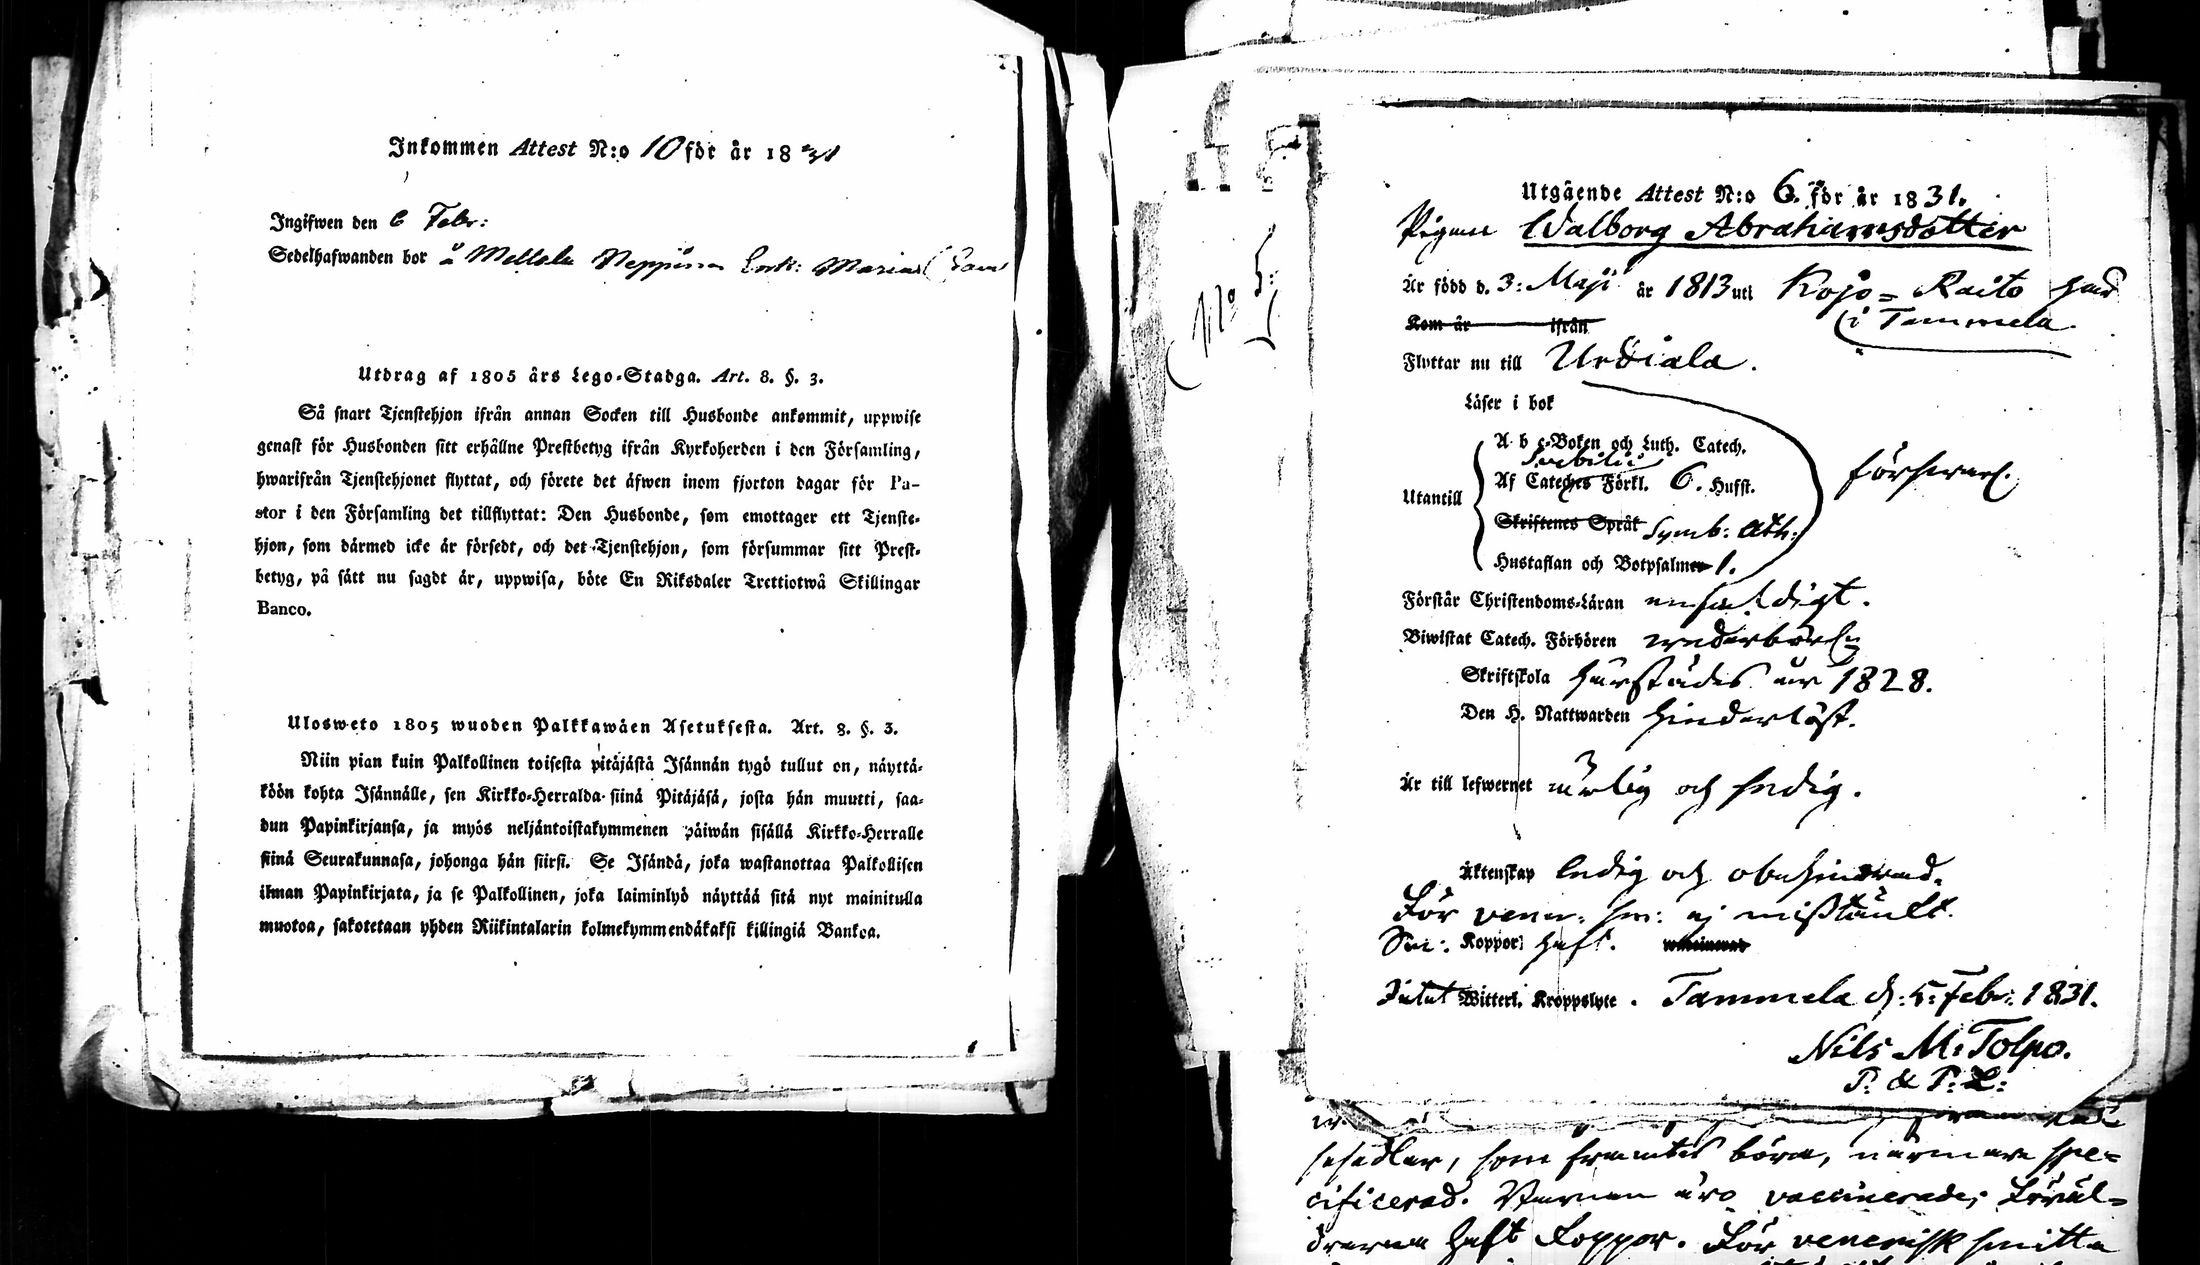 Inkommen Attest N:o 10 för år 1831
Ingifwen den 6 Febr:
Sedelhafwanden bor å Mellola Neppira Enk: Marias
Utdrag af 1805 års Lego-Stadga. Art. 8. §. 3.
Så snart Tjenstehjon ifrån annan Socken till Husbonde ankommit, uppwise
genast för Husbonden sitt erhållne Prestbetyg ifrån Kyrkoherden i den Församling,
hwarifrån Tjenstehjonet flyttat, och förete det äfwen inom fjorton dagar för Pa-
stor i den Församling det tillflyttat: Den Husbonde, som emottager ett Tjenste-
hjon, som därmed icke är försedt, och det Tjenstehjon, som försummar sitt Prest-
betyg, på sätt nu sagdt är, uppwisa, böte En Riksdaler Trettiotwå Skillingar
Banco.
Ulosweto 1805 wuoden Palkkawäen Asetuksesta. Art. 8. §. 3.
Niin pian kuin Palkollinen toisesta pitäjästä Isännän tygö tullut on, näyttä-
köön kohta Isännälle, sen Kirkko-Herralda siinä Pitäjäsä, josta hän muutti, saa-
dun Papinkirjansa, ja myös neljäntoistakymmenen päiwän sisällä Kirkko-Herralle
siinä Seurakunnasa, johonga hän siirsi. Se Isändä, joka wastanottaa Palkollisen
ilman Papinkirjata, ja se Palkollinen, joka laiminlyö näyttää sitä nyt mainitulla
muotoa, sakotetaan yhden Riikintalarin kolmekymmendäkaksi killingiä Bankoa.
N:o 5:
Utgående Attest N:o 6. för år 1831.
Pigan Walborg Abrahamsdotter
Är född d. 3: Maji år 1813 uti Kojo-Raito
i Tammela.
Kom år ifrån
Flyttar nu till Urdiala.
Läser i bok
A b c-Boken och Luth. Catech.
Svebilii
Af Cateches Förkl. 6. Hufst.
Utantill
Skriftenes Språk Symb: Ath:
Hustaflan och Botpsalmen 1.
försvarl.
Förstår Christendoms-Läran enfaldigt.
Biwistat Catech. Förhören wederbörl:n
Skriftskola härstädes år 1828.
Den H. Nattwarden hinderlöst.
Är till lefwernet ärlig och fredig.
Äktenskap ledig och obehindrad.
För vener. sm: ej misstänkt.
Koppor haft.
Witterl. Kroppslyte. Tammela d: 5: Febr: 1831.
Nils M: Tolpo.
P. & P: L:
sesedlar, som framtes böra, närmare spe-
cificerad. Barnen äro vaccinerade; Föräl-
drarna haft Koppor. För venerisk smitta